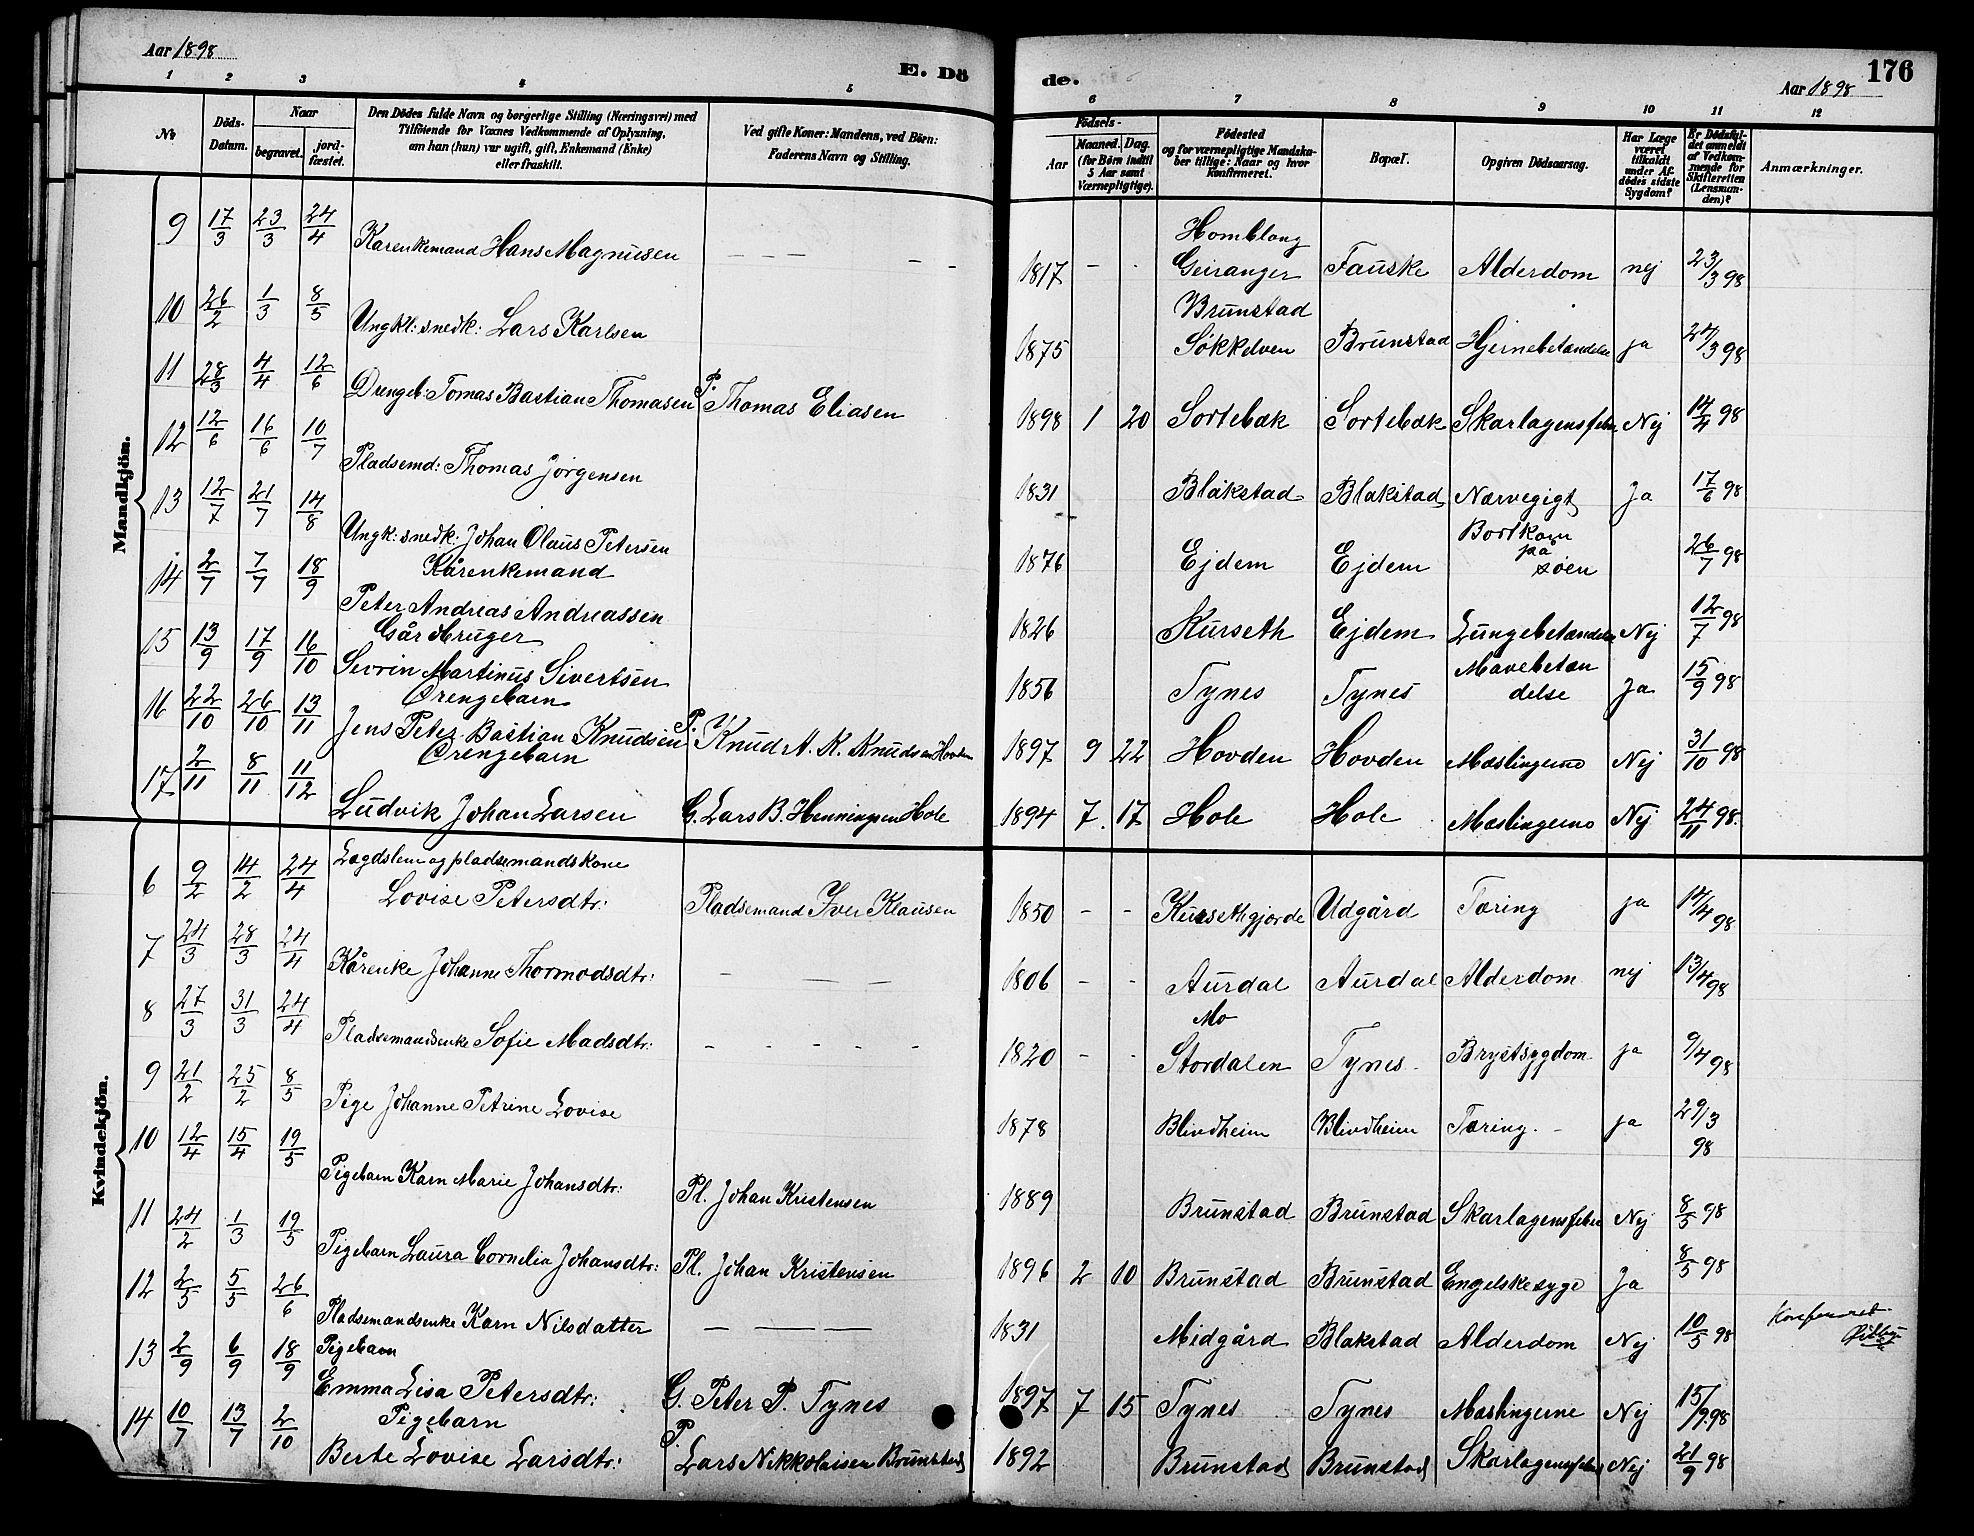 Aar 1898
E. Dö
de.
176
Aar 1898
1 2 3 4 5 6 7 8 9 10 11 12
No
Döds-Datum.
Naar
begravet.
jord-fæstet.
Den Dödes fulde Navn og borgerlige Stilling (Næringsvei) med
Tilföiende for Voxnes Vedkommende af Oplysning,
om han (hun) var ugift, gift, Enkemand (Enke)
eller fraskilt.
Ved gifte Koner: Mandens, ved Börn:
Faderens Navn og Stilling.
Födsels-
Aar
Maaned. Dag.
(for Börn indtil
5 Aar samt
Værnepligtige).
Födested
og for værnepligtige Mandska-
ber tillige: Naar og hvor
Konfirmeret.
Bopæl.
Opgiven Dödsaarsag.
Har Læge
været
tilkaldt
under Af-
dödes sidste
Sygdom?
Er Dödsfal-
det anmeldt
af Vedkom-
mende for
Skifteretten
(Lensman-
den)?
Anmærkninger.
Mandkjön.
9 17/3 23/3 24/4 Kårenkemand Hans Magnusen — — — 1817 - - Homblong Geiranger Fauske Alderdom nej 23/3 98
10 26/2 1/3 8/5 Ungkl: snedk: Lars Karlsen 1875 Brunstad Søkkelven Brunstad Hjernebetændelse ja 24/3 98
11 28/3 4/4 12/6 Drengeb: Tomas Bastian Thomasen P. Thomas Eliasen 1898 1 20 Sortebæk Sortebæk Skarlagensfeber Nej 14/4 98
12 12/6 16/6 10/7 Pladsemd: Thomas Jørgensen 1831 Blåkstad Blakstad Nærvegigt Ja 17/6 98
13 12/7 21/7 14/8 Ungk: snedk: Johan Olaus Petersen 1876 Ejdem Ejdem Bortkom på søen 26/7 98
14 2/7 7/7 18/9 Kårenkemand Peter Andreas Andreassen 1826 Kurseth Ejdem Lungebetændelse Nej 12/7 98
15 13/9 17/9 16/10 Gårdbruger Sevrin Martinus Sivertsen 1856 Tynes Tynes Mavebetændelse Ja 15/9 98
16 22/10 26/10 13/11 Drengebarn Jens Peter Bastian Knudsen P. Knud A. K. Knudsen Hovden 1897 9 22 Hovden Hovden Mæslingerne Nej 31/10 98
17 2/11 8/11 11/12 Drengebarn Ludvik Johan Larsen G. Lars B. Henningsen Hole 1894 7 17 Hole Hole Mæslingerne Nej 24/11 98.
Kvindekjön.
6 9/2 14/2 24/4 Lægdslem og pladsemandskone Lovise Petersdtr: Pladsemand Iver Klausen 1850 - - Kursethgjærde Udgård Tæring ja 14/4 98
7 24/3 28/3 24/4 Kårenke Johanne Thormodsdtr: — — — 1806 - - Aurdal Aurdal Alderdom nej 13/4 98
8 27/3 31/3 24/4 Pladsemandsenke Sofie Madsdtr: - - - - - 1820 - - Mo Stordalen Tynes Brystsygdom ja 9/4 98
9 21/2 25/2 8/5 Pige Johanne Petrine Lovise 1878 Blindheim Blindheim Tæring. - ja 29/3 98
10 12/4 15/4 19/5 Pigebarn Karn Marie Johansdtr: Pl. Johan Kristensen 1889 Brunstad Brunstad Skarlagensfeber Nej 8/5 98
11 24/2 1/3 19/5 Pigebarn Laura Cornelia Johansdtr: Pl. Johan Kristensen 1896 2 10 Brunstad Brunstad Engelskesyge Ja 8/5 98
12 2/5 5/5 26/6 Pladsemandsenke Karn Nilsdatter — — — 1831 Midgård Blakstad Alderdom Nej 10/5 98
13 2/9 6/9 18/9 Pigebarn Emma Lisa Petersdtr: G. Peter P. Tynes 1897 7 15 Tynes Tynes Mæslingerne Nej 15/9 98
14 10/7 13/7 2/10 Pigebarn Berte Lovise Larsdtr: P. Lars Nikkolaisen Brunstad 1892 Brunstad Brunstad Skarlagensfeber Nej 21/9 98